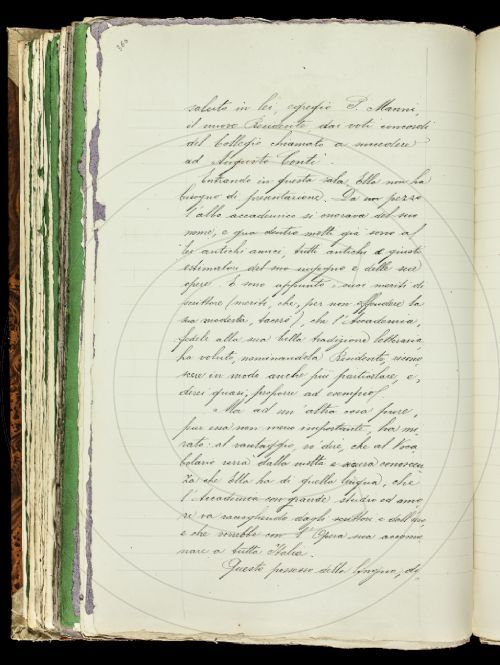 360
saluto in lei, egregio P. Manni,
il nuovo Residente, dai voti concordi
del Collegio chiamato a succedere
ad Augusto Conti.
Entrando in questa sala Ella non ha
bisogno di presentazione. Da un pezzo
l'albo accademico si onorava del suo
nome, e qua dentro molti già sono a
lei antichi amici, tutti antichi e giusti
estimatori del suo ingegno e delle sue
opere. E sono appunto i suoi meriti di
scrittore (meriti, che, per non offendere la
sua modestia, tacerò), che l'Accademia,
fedele alla sua bella tradizione letteraria,
ha voluto, nominandola Residente, ricono
scere in modo anche più particolare, e,
direi quasi, proporre ad esempio.
Ma ad un'altra cosa pure,
pur essa non meno importante, ha mi
rato: al vantaggio, io dirò, che al Voca
bolario verrà dalla molta e sicura conoscen
za che Ella ha di quella lingua, che
l'Accademia con grande studio ed amo
re va raccogliendo dagli scrittori e dall'uso,
e che vorrebbe con l'Opera sua accomu
nare a tutta Italia.
Questo possesso della lingua, di